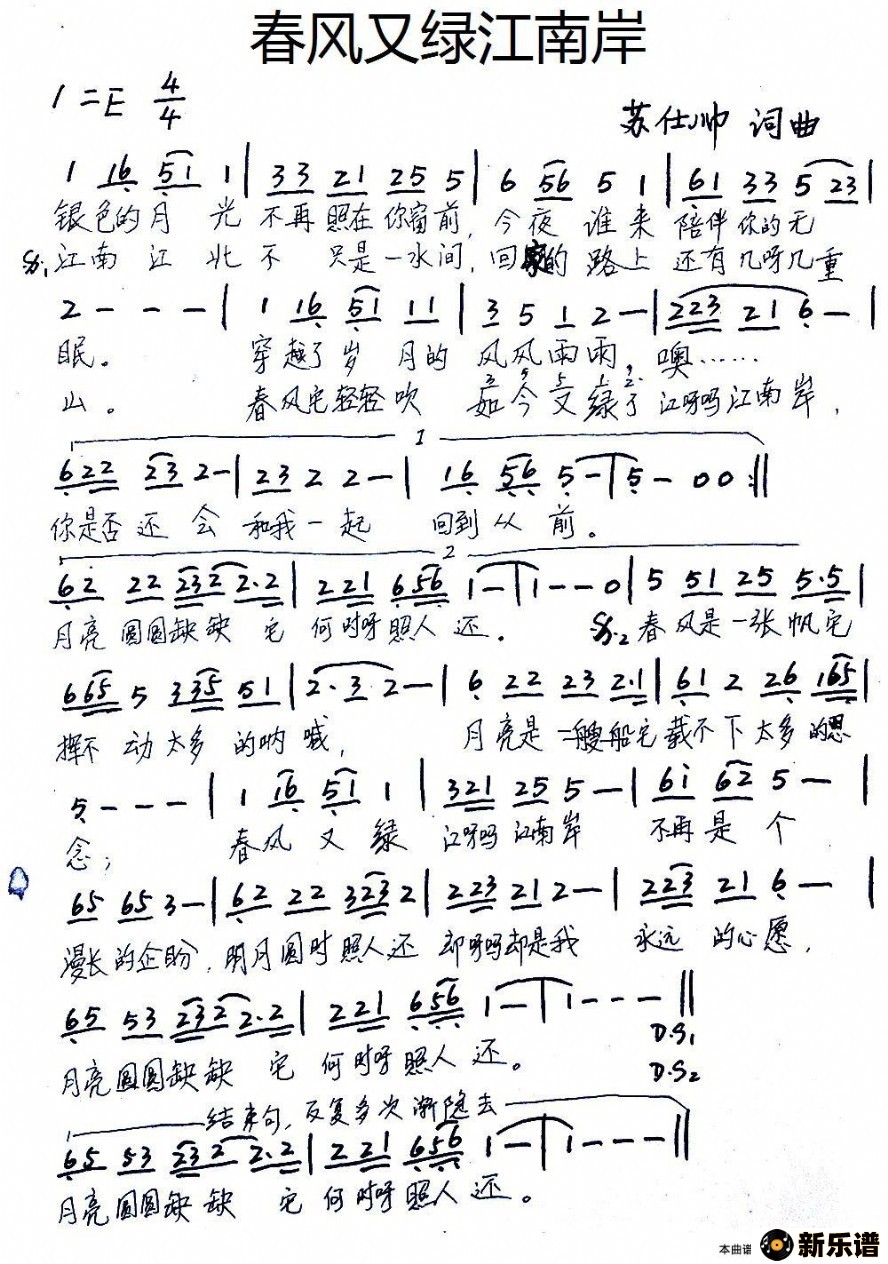 春风又绿江南岸
1=E 4/4
苏仕帅 词曲
1 16 51 1 | 33 21 25 5 | 6 56 5 1 | 61 33 5 23 |
银色的月 光 不再 照在 你窗前, 今夜 谁 来 陪伴 你的 无
𝄋1 江南 江 北 不 只是一水间, 回家的 路上 还有 几呀几重
2 - - - | 1 16 51 11 | 3 5 1 2 - | 223 21 6 - |
眠。 穿越了岁 月的 风风雨雨, 噢……
3 5 5 1 2·
山。 春风它轻轻吹 如今又绿了 江呀吗江南岸,
1
622 23 2 - | 23 2 2 - | 16 56 5 - | 5 - 0 0 :||
你是否 还 会 和我一起 回到 从 前。
2
62 22 232 2·2 | 221 656 1 - | 1 - - 0 | 5 51 25 5·5 |
月亮 圆圆缺缺 它 何时呀照人 还。 𝄋2 春风是一张帆它
665 5 335 51 | 2·3 2 - | 6 22 23 2·1 | 61 2 26 165 |
挥不 动太多 的呐 喊, 月亮是一艘船它载不下太多的思
5 - - - | 1 16 51 1 | 321 25 5 - | 61 62 5 - |
念; 春风 又 绿 江呀吗 江南岸 不再是 个
65 65 3 - | 62 22 323 2 | 223 21 2 - | 223 21 6 - |
漫长的企盼, 明月圆时 照人还 却呀吗却是我 永远 的心愿,
65 53 232 2·2 | 221 656 1 - | 1 - - - ||
D.S1
月亮圆圆缺缺 它 何时呀照人 还。
D.S2
结束句,反复多次渐隐去
65 53 232 2·2 | 221 656 1 - | 1 - - - ||
月亮圆圆缺缺 它 何时呀照人 还。
本曲谱
新乐谱